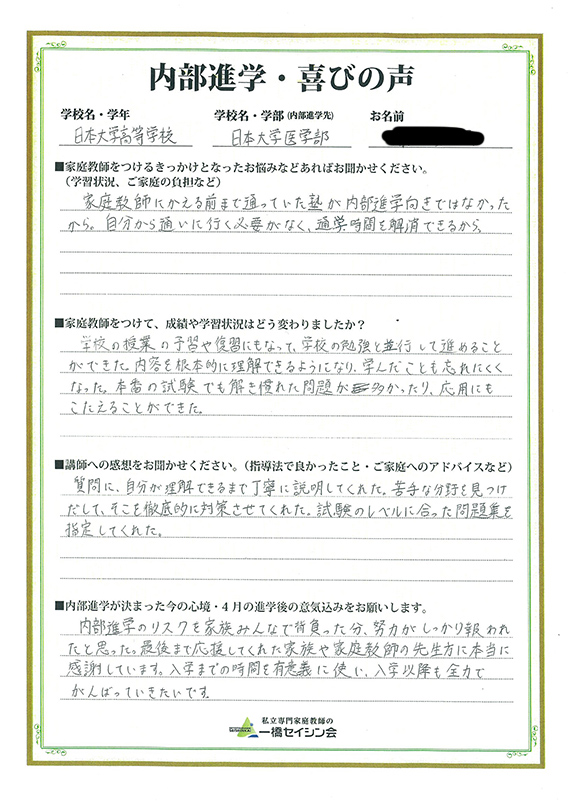 内部進学・喜びの声
学校名・学年 学校名・学部(内部進学先) お名前
日本大学高等学校 日本大学医学部
■家庭教師をつけるきっかけとなったお悩みなどあればお聞かせください。
(学習状況、ご家庭の負担など)
家庭教師にかえる前まで通っていた塾が内部進学向きではなかった
から。自分から通いに行く必要がなく、通学時間を解消できるから
■家庭教師をつけて、成績や学習状況はどう変わりましたか?
学校の授業の予習や復習にもなって、学校の勉強と並行して進めること
ができた。内容を根本的に理解できるようになり、学んだことも忘れにくく
なった。本番の試験でも解き慣れた問題が多かったり、応用にも
こたえることができた。
■講師への感想をお聞かせください。(指導法で良かったこと・ご家庭へのアドバイスなど)
質問に、自分が理解できるまで丁寧に説明してくれた。苦手な分野を見つけ
だして、そこを徹底的に対策させてくれた。試験のレベルに合った問題集を
指定してくれた。
■内部進学が決まった今の心境・4月の進学後の意気込みをお願いします。
内部進学のリスクを家族みんなで背負った分、努力がしっかり報われ
たと思った。最後まで応援してくれた家族や家庭教師の先生方に本当に
感謝しています。入学までの時間を有意義に使い、入学以降も全力で
がんばっていきたいです。
私立専門家庭教師の
一橋セイシン会